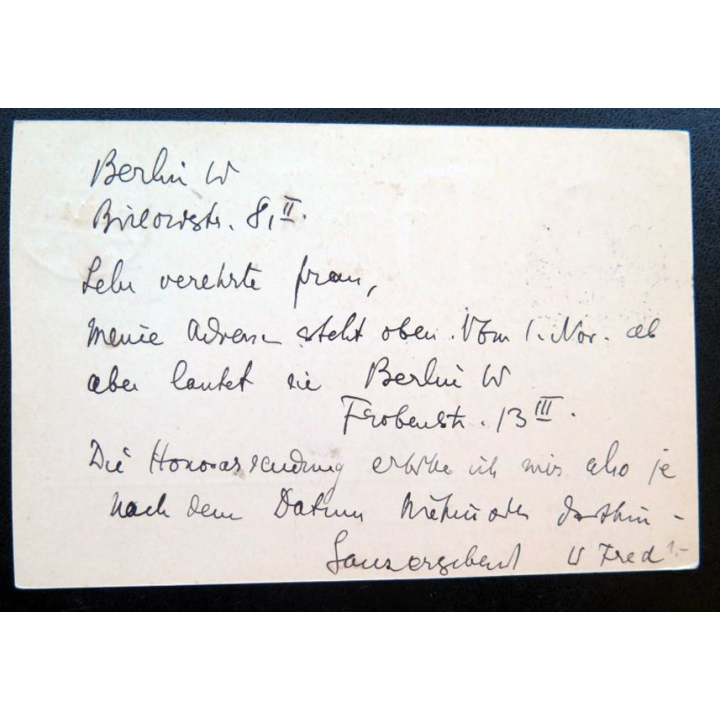 Berlin W
Bülowstr. 8, II.
Sehr verehrte Frau,
meine Adresse steht oben. Vom 1. Nov. ab
aber lautet sie Berlin W
Frobenstr. 13 III.
Die Honorarsendung erbitte ich mir also je
nach dem Datum hierhin oder dorthin -
Ganz ergebenst W Fred
1.-